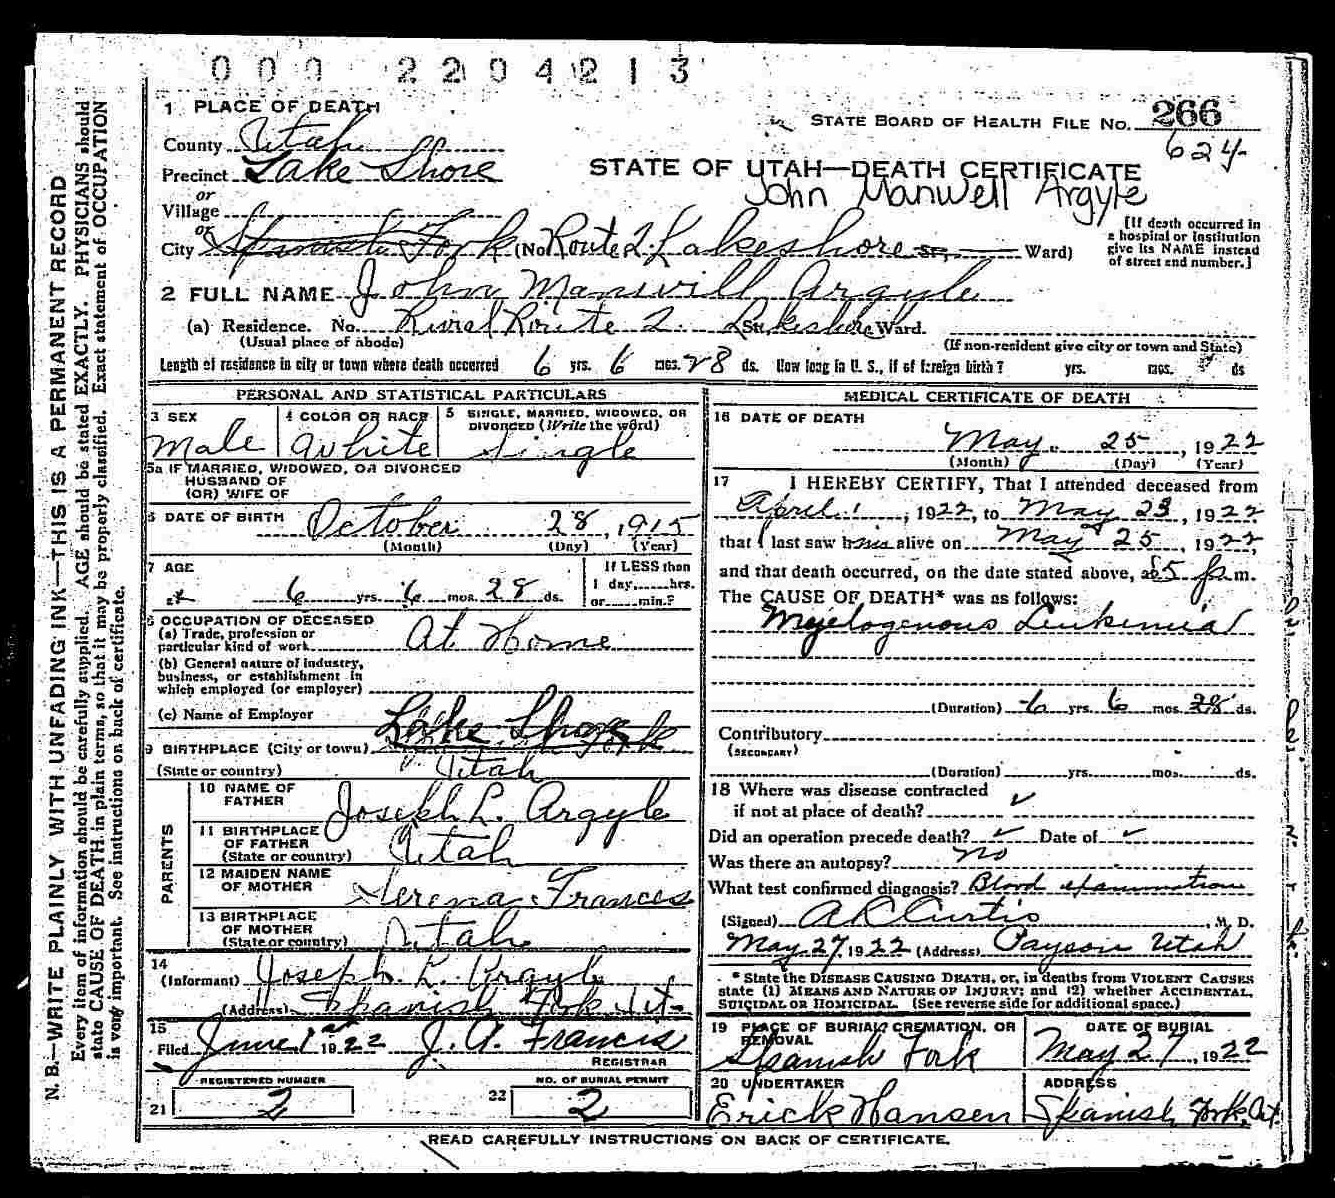 0 0 0 2 2 0 4 2 1 3
1 PLACE OF DEATH
STATE BOARD OF HEALTH FILE No. 266
624
County Utah
Precinct Lake Shore
STATE OF UTAH—DEATH CERTIFICATE
John Manwell Argyle
or
Village
or
City Spanish Fork (No. Route 2. Lakeshore St., Ward)
[If death occurred in
a hospital or institution
give its NAME instead
of street and number.]
2 FULL NAME John Manwill Argyle
(a) Residence. No. Rural Route 2. Lakeshore St. Ward.
(Usual place of abode)
(If non-resident give city or town and State)
Length of residence in city or town where death occurred 6 yrs. 6 mos. 28 ds. How long in U. S., if of foreign birth? yrs. mos. ds
PERSONAL AND STATISTICAL PARTICULARS
3 SEX
Male
4 COLOR OR RACE
White
5 SINGLE, MARRIED, WIDOWED, OR
DIVORCED (Write the word)
Single
5a IF MARRIED, WIDOWED, OR DIVORCED
HUSBAND OF
(OR) WIFE OF
6 DATE OF BIRTH October 28, 1915
(Month) (Day) (Year)
7 AGE
6 yrs. 6 mos. 28 ds.
If LESS than
1 day, hrs.
or min.?
8 OCCUPATION OF DECEASED
(a) Trade, profession or
particular kind of work At Home
(b) General nature of industry,
business, or establishment in
which employed (or employer)
(c) Name of Employer
9 BIRTHPLACE (City or town) Lake Shore
(State or country) Utah
PARENTS
10 NAME OF
FATHER Joseph L. Argyle
11 BIRTHPLACE
OF FATHER
(State or country) Utah
12 MAIDEN NAME
OF MOTHER Serena Frances
13 BIRTHPLACE
OF MOTHER
(State or country) Utah
14
(Informant) Joseph L. Argyle
(Address) Spanish Fork Ut-
15
Filed June 1st 1922 J. A. Francis
REGISTRAR
REGISTERED NUMBER
21 2
NO. OF BURIAL PERMIT
22 2
MEDICAL CERTIFICATE OF DEATH
16 DATE OF DEATH
May 25, 1922
(Month) (Day) (Year)
17 I HEREBY CERTIFY, That I attended deceased from
April 1, 1922, to May 23, 1922
that I last saw him alive on May 25, 1922,
and that death occurred, on the date stated above, at 5 p m.
The CAUSE OF DEATH* was as follows:
Myelogenous Leukemia
(Duration) 6 yrs. 6 mos. 28 ds.
Contributory
(SECONDARY)
(Duration) yrs. mos. ds.
18 Where was disease contracted
if not at place of death? ✓
Did an operation precede death? ✓ Date of ✓
Was there an autopsy? no
What test confirmed diagnosis? Blood examination
(Signed) A R Curtis M. D.
May 27, 1922 (Address) Payson Utah
* State the DISEASE CAUSING DEATH, or, in deaths from VIOLENT CAUSES
state (1) MEANS AND NATURE OF INJURY; and (2) whether ACCIDENTAL,
SUICIDAL OR HOMICIDAL. (See reverse side for additional space.)
19 PLACE OF BURIAL, CREMATION, OR
REMOVAL
Spanish Fork
DATE OF BURIAL
May 27, 1922
20 UNDERTAKER
Erick Hansen
ADDRESS
Spanish Fork, Ut.
READ CAREFULLY INSTRUCTIONS ON BACK OF CERTIFICATE.
N. B.—WRITE PLAINLY WITH UNFADING INK—THIS IS A PERMANENT RECORD
Every item of information should be carefully supplied. AGE should be stated EXACTLY. PHYSICIANS should
state CAUSE OF DEATH in plain terms, so that it may be properly classified. Exact statement of OCCUPATION
is very important. See instructions on back of certificate.